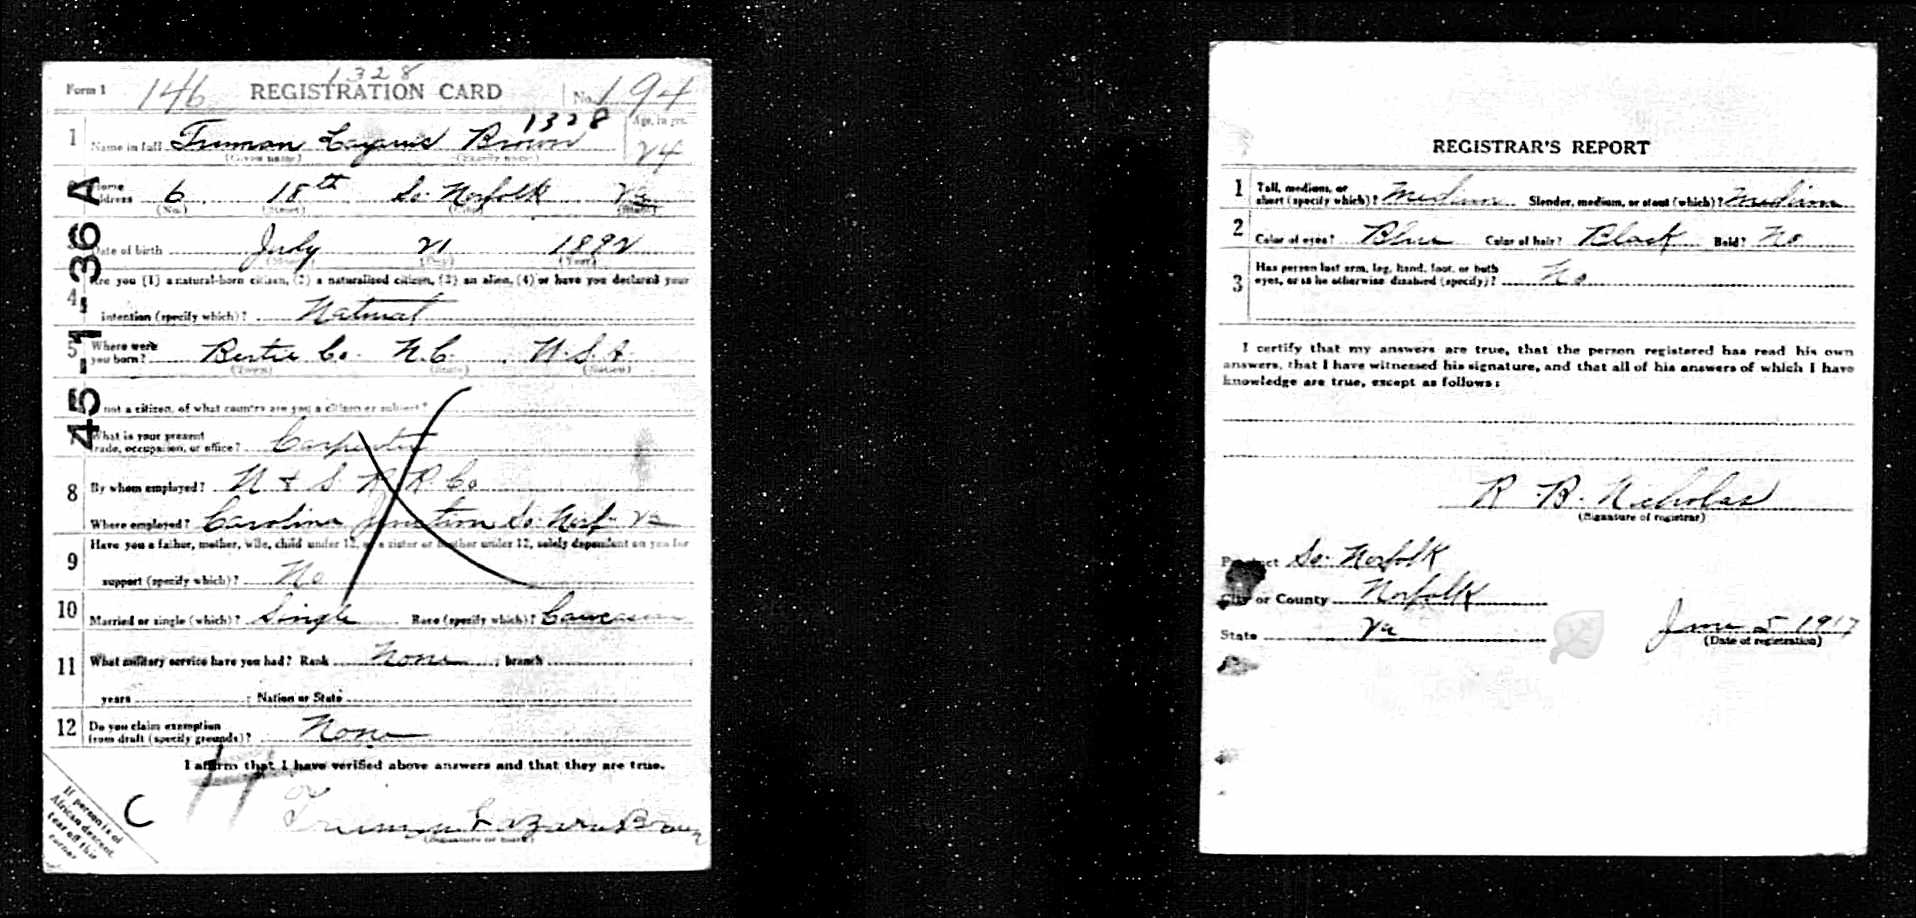 1328
Form 1 146 REGISTRATION CARD No. 194
1328
1 Name in full Truman Lazarus Brown Age, in yrs. 24
(Given name) (Family name)
Home address 6 18th So. Norfolk Va
(No.) (Street) (City) (State)
Date of birth July 21 1892
(Month) (Day) (Year)
Are you (1) a natural-born citizen, (2) a naturalized citizen, (3) an alien, (4) or have you declared your
4 intention (specify which)? Natural
5 Where were you born? Bertie Co. N.C. U.S.A.
(Town) (State) (Nation)
not a citizen, of what country are you a citizen or subject?
What is your present
trade, occupation, or office? Carpenter
8 By whom employed? N & S R R Co
Where employed? Carolina Junction So. Norf. Va
9 Have you a father, mother, wife, child under 12, or a sister or brother under 12, solely dependent on you for
support (specify which)? No
10 Married or single (which)? Single Race (specify which)? Caucasian
11 What military service have you had? Rank None ; branch
years ; Nation or State
12 Do you claim exemption
from draft (specify grounds)? None
I affirm that I have verified above answers and that they are true.
Truman Lazarus Brown
(Signature or mark)
If person is of
African descent,
tear off this
corner
C
45-1-36 A
REGISTRAR'S REPORT
1 Tall, medium, or
short (specify which)? Medium Slender, medium, or stout (which)? Medium
2 Color of eyes? Blue Color of hair? Black Bald? No
3 Has person lost arm, leg, hand, foot, or both
eyes, or is he otherwise disabled (specify)? No
I certify that my answers are true, that the person registered has read his own
answers, that I have witnessed his signature, and that all of his answers of which I have
knowledge are true, except as follows:
R. B. Nicholas
(Signature of registrar)
Precinct So. Norfolk
City or County Norfolk
State Va June 5 1917
(Date of registration)